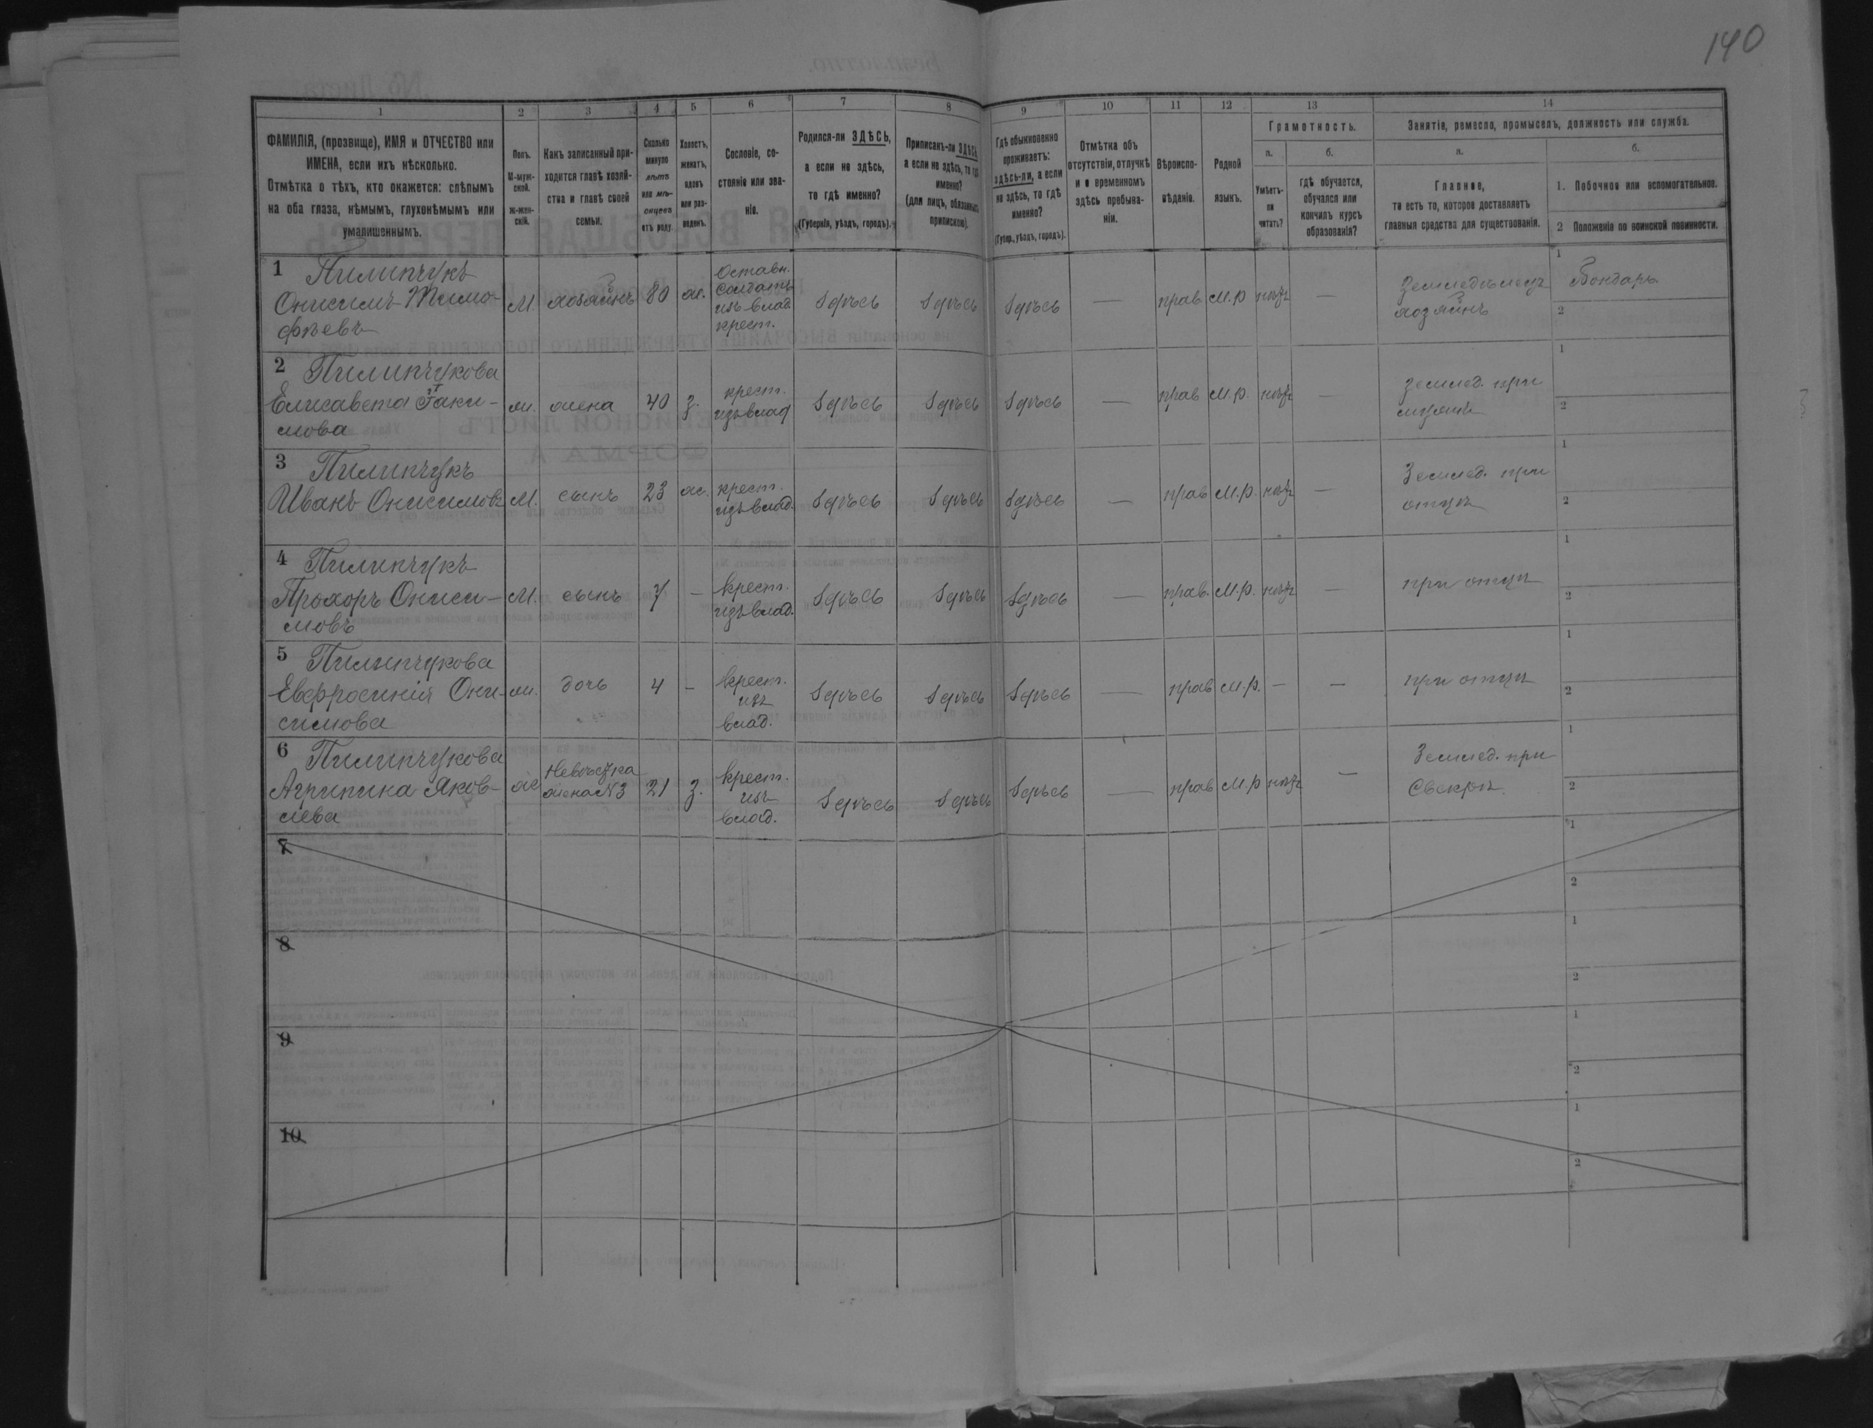 140
1 2 3 4 5 6 7 8 9 10 11 12 13 14
ФАМИЛІЯ, (прозвище), ИМЯ и ОТЧЕСТВО или
ИМЕНА, если ихъ нѣсколько.
Отмѣтка о тѣхъ, кто окажется: слѣпымъ
на оба глаза, нѣмымъ, глухонѣмымъ или
умалишеннымъ.
Полъ.
М-муж-
ской.
ж-жен-
скій.
Какъ записанный при-
ходится главѣ хозяй-
ства и главѣ своей
семьи.
Сколько
минуло
лѣтъ
или мѣ-
сяцевъ
отъ роду.
Холостъ,
женатъ,
вдовъ
или раз-
веденъ.
Сословіе, со-
стояніе или зва-
ніе.
Родился-ли ЗДѢСЬ,
а если не здѣсь,
то гдѣ именно?
(Губернія, уѣздъ, городъ).
Приписанъ-ли ЗДѢСЬ,
а если не здѣсь, то гдѣ
именно?
(для лицъ, обязанныхъ
припискою).
Гдѣ обыкновенно
проживаетъ:
здѣсь-ли, а если
не здѣсь, то гдѣ
именно?
(Губер., уѣздъ, городъ).
Отмѣтка объ
отсутствіи, отлучкѣ
и о временномъ
здѣсь пребыва-
ніи.
Вѣроиспо-
вѣданіе.
Родной
языкъ.
Грамотность.
а.
Умѣетъ-
ли
читать?
б.
гдѣ обучается,
обучался или
кончилъ курсъ
образованія?
Занятіе, ремесло, промыселъ, должность или служба.
а.
Главное,
то есть то, которое доставляетъ
главныя средства для существованія.
б.
1. Побочное или вспомогательное.
2 Положеніе по воинской повинности.
1 Пилипчукъ
Онисимъ Тимо-
фѣевъ
М. хозяинъ 80 ж.
Оставн.
солдатъ
изъ влад
крест.
здѣсь здѣсь здѣсь — прав М.р нѣтъ —
Земледѣлецъ
хозяинъ
1 Бондарь
2
2 Пилипчукова
Елисавета Таки-
мова
ж. жена 40 з.
крест.
изъ влад
здѣсь здѣсь здѣсь — прав М.р. нѣтъ —
землед. при
мужѣ
1
2
3 Пилипчукъ
Иванъ Онисимовъ
М. сынъ 23 ж.
крест.
изъ влад.
здѣсь здѣсь здѣсь — прав М.р. нѣтъ —
Землед. при
отцѣ
1
2
4 Пилипчукъ
Прохоръ Ониси-
мовъ
М. сынъ 7 —
крест.
изъ влад.
здѣсь здѣсь здѣсь — прав. М.р. нѣтъ —
при отцѣ
1
2
5 Пилипчукова
Евфросинія Они-
симова
ж. дочь 4 —
крест.
изъ
влад.
здѣсь здѣсь здѣсь — прав М.р. — —
при отцѣ
1
2
6 Пилипчукова
Агрипина Яков-
лева
ж
Невѣстка
жена №3
21 з.
крест.
изъ
влад.
здѣсь здѣсь здѣсь — прав М.р нѣтъ —
Землед. при
свекрѣ.
1
2
7
1
2
8
1
2
9
1
2
10
1
2